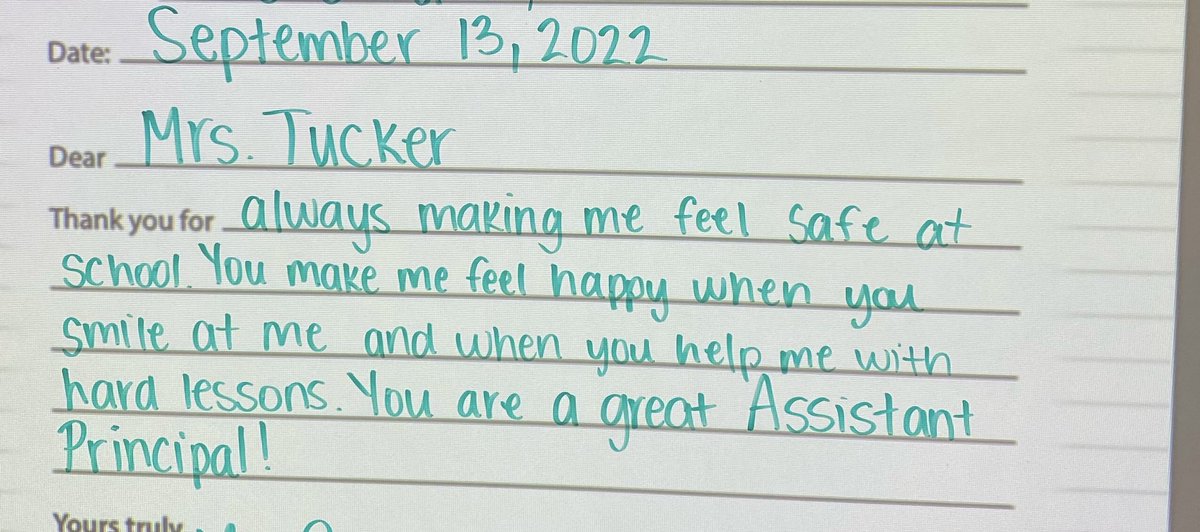 Date: September 13, 2022
Dear Mrs. Tucker
Thank you for always making me feel safe at
school. You make me feel happy when you
smile at me and when you help me with
hard lessons. You are a great Assistant
Principal!
Yours truly